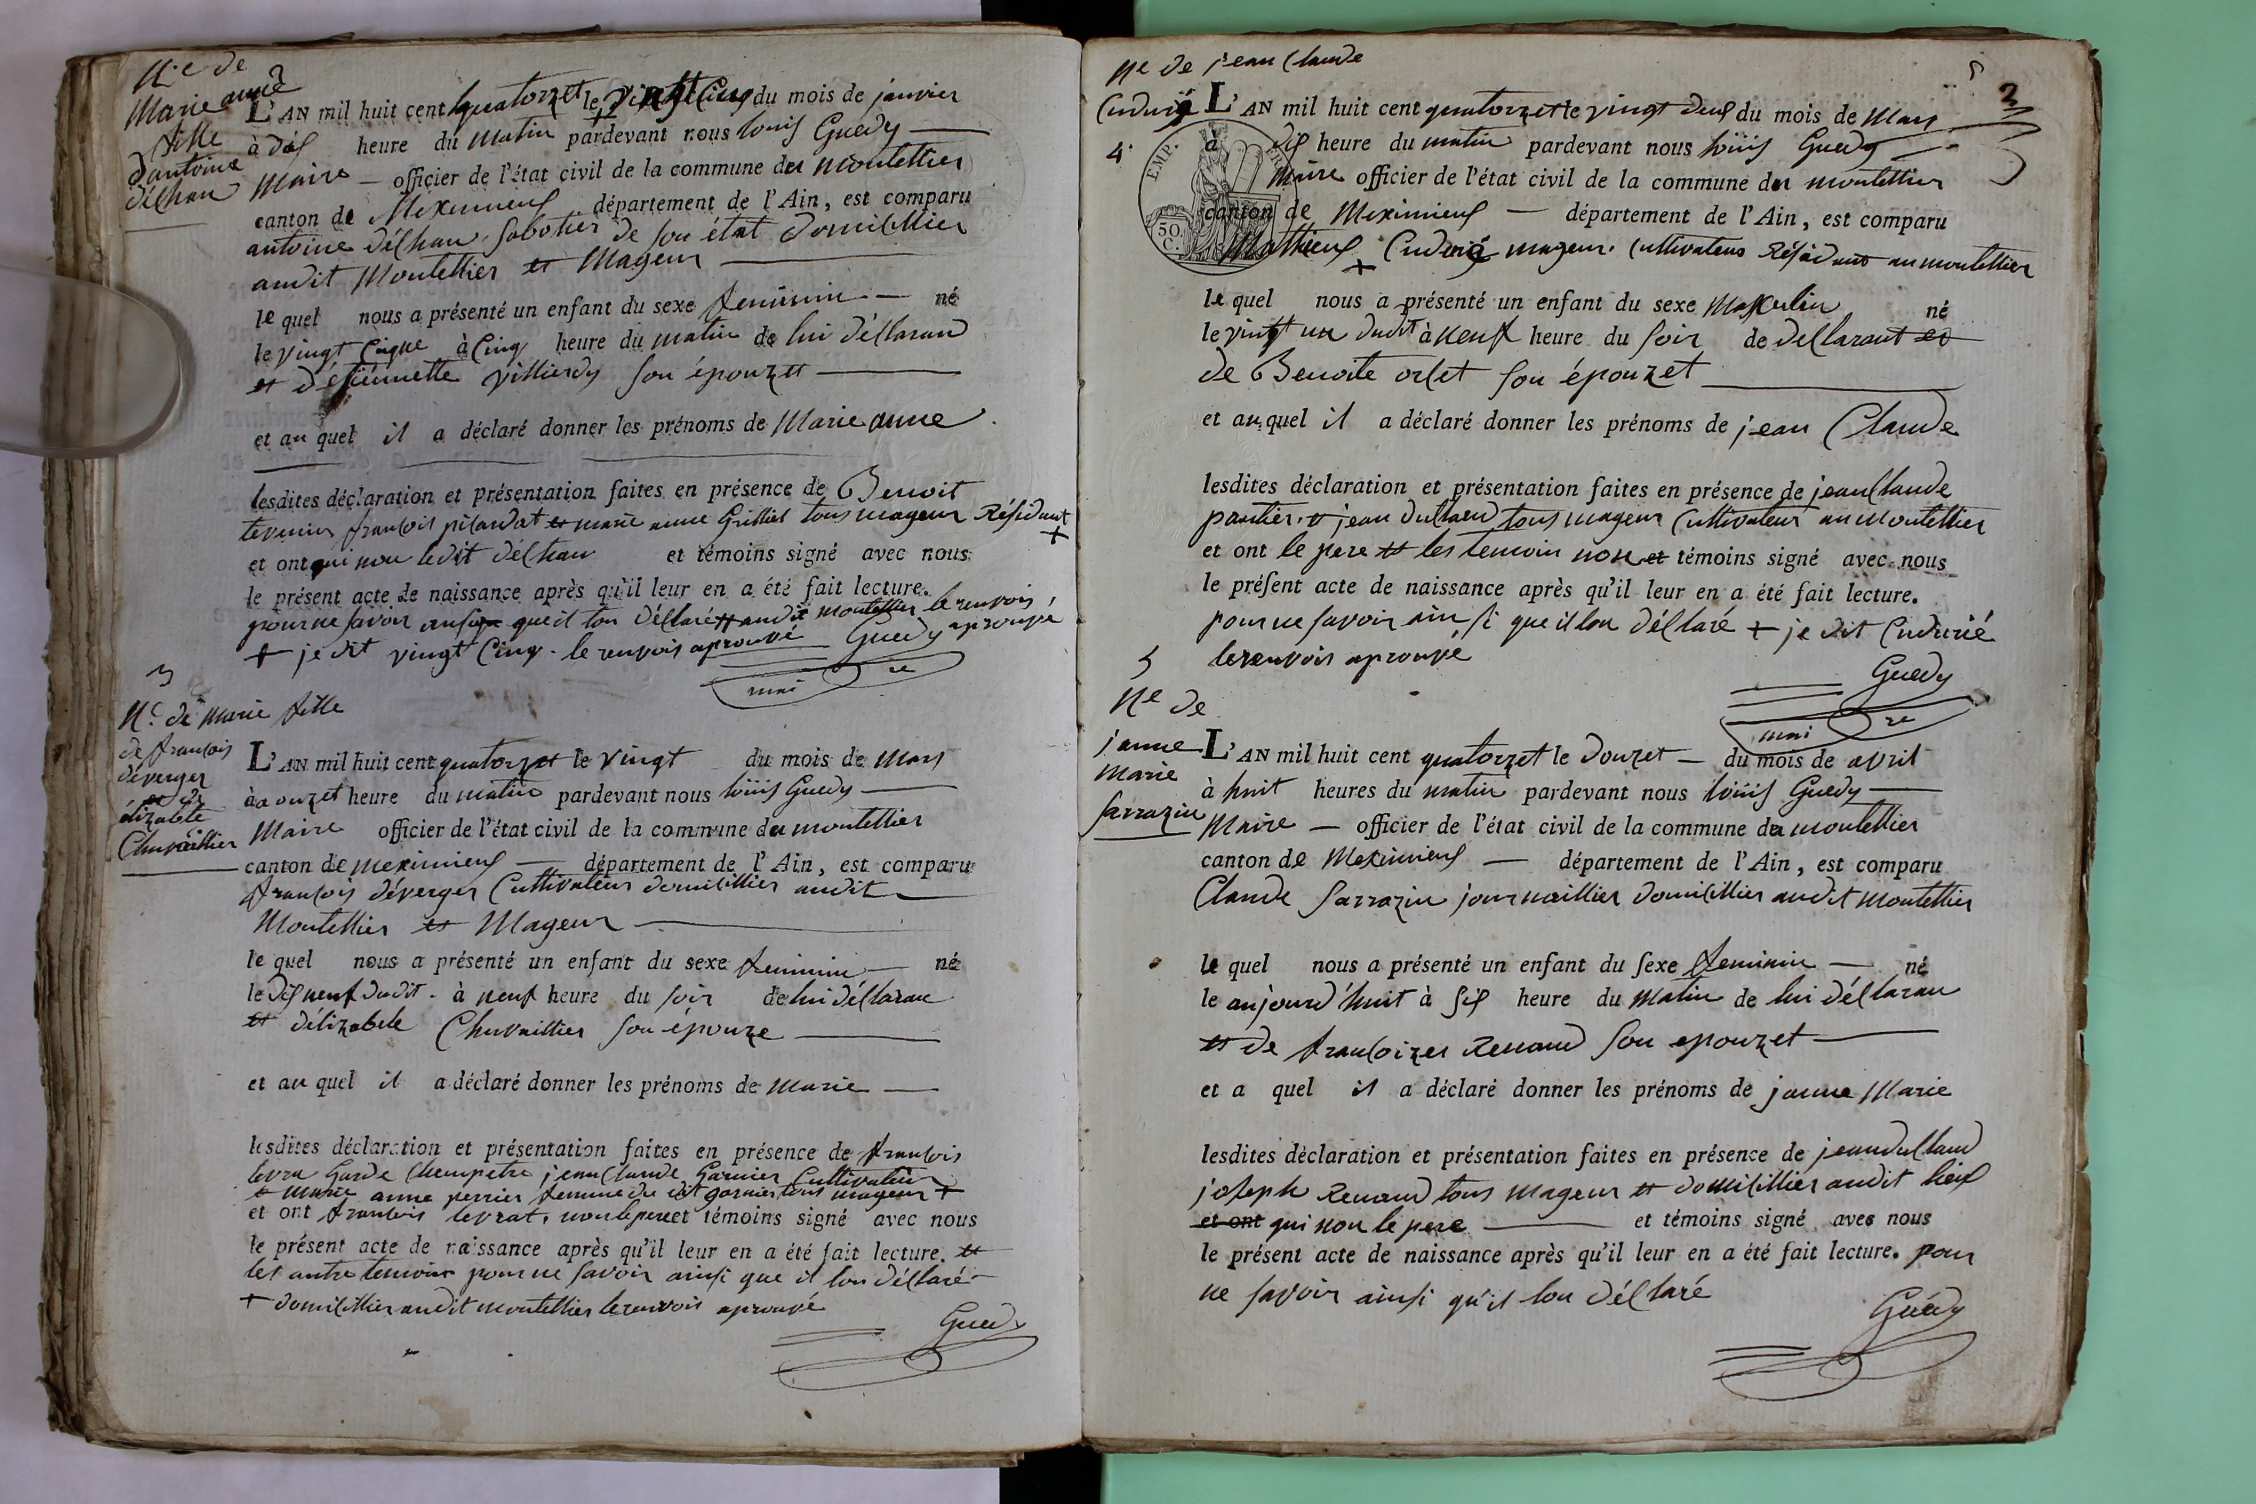 N.e de
Marie anne
fille
d'antoine
déchan
2
L'AN mil huit cent quatorzet le vingt cinq du mois de janvier
à dis heure du matin pardevant nous louis Guedy
Maire officier de l'état civil de la commune du montellier
canton de Meximieux département de l'Ain, est comparu
antoine déchan sabotier de son état domicillier
audit Montellier et Mageur
le quel nous a présenté un enfant du sexe feminin né
le vingt cinque à cinq heure du matin de lui déclaran
et d'éstiennette villierdy son épouzet
et au quel il a déclaré donner les prénoms de Marie anne
lesdites déclaration et présentation faites en présence de Benoit
tevenin françois pilaudat et marie anne Grilliet tous mageur Résidant +
et ont qui non ledit déchan et témoins signé avec nous
le présent acte de naissance après qu'il leur en a été fait lecture.
pour ne savoir ainsi que il lon déclaré + audit montellier le renvois
aprouvé
+ je dit vingt cinq. le renvois aprouvé Guedy
maire
3
N.e de marie fille
de françois
déverger
et de
élizabete
Chuvaillier
L'AN mil huit cent quatorzet le vingt du mois de mars
à aonzet heure du matin pardevant nous louis Guedy
Maire officier de l'état civil de la commune du montellier
canton de meximieux département de l'Ain, est comparu
françois déverger Cultivateur domicillier audit
Montellier et Mageur
le quel nous a présenté un enfant du sexe feminin né
le dis neuf dudit à neuf heure du soir de lui déclaran
et d'élizabete Chuvaillier son épouze
et au quel il a déclaré donner les prénoms de marie
lesdites déclaration et présentation faites en présence de françois
levra Garde Chempetre jean Claude Garnier Cultivateur
et marie anne perrier femme du dit garnier tous mageur +
et ont françois levrat, non le pere et témoins signé avec nous
le présent acte de naissance après qu'il leur en a été fait lecture. et
les autre temoin pour ne savoir ainsi que il lon déclaré
+ domicillier audit montellier le renvois aprouvé
Guedy
Ne de jean Claude
Cudurié
4.
2
L'AN mil huit cent quatorzet le vingt deus du mois de Mars
à dis heure du matin pardevant nous louis Guedy
Maire officier de l'état civil de la commune du montellier
canton de Meximieux département de l'Ain, est comparu
Mathieux + Cudurié mageur. Cultivateur Résidant au montellier
EMP.
FR
50
C.
le quel nous a présenté un enfant du sexe Masculin né
le vingt un dudit à neuf heure du soir de dellarant et
de Benoite orset son épouzet
et au quel il a déclaré donner les prénoms de jean Claude
lesdites déclaration et présentation faites en présence de jean Claude
pantier et jean dullaud tous mageur Cultivateur au montellier
et ont le pere et les temoin non et témoins signé avec nous
le présent acte de naissance après qu'il leur en a été fait lecture.
pour ne savoir ainsi que il lon déclaré + je dit Cudurié
le renvois aprouvé
Guedy
maire
5
Ne de
janne
marie
Sarrazin
L'AN mil huit cent quatorzet le douzet du mois de avril
à huit heures du matin pardevant nous louis Guedy
Maire officier de l'état civil de la commune du montellier
canton de Meximieux département de l'Ain, est comparu
Claude Sarrazin journaillier domicillier audit montellier
le quel nous a présenté un enfant du sexe feminin né
le aujourd'huit à sis heure du matin de lui déclaran
et de françoizes Renaud son epouzet
et a quel il a déclaré donner les prénoms de janne Marie
lesdites déclaration et présentation faites en présence de jean dullaud
joseph Renaud tous mageur et domicillier audit lieux
et ont qui non le pere et témoins signé avec nous
le présent acte de naissance après qu'il leur en a été fait lecture. pour
ne savoir ainsi qu'il lon déclaré
Guedy